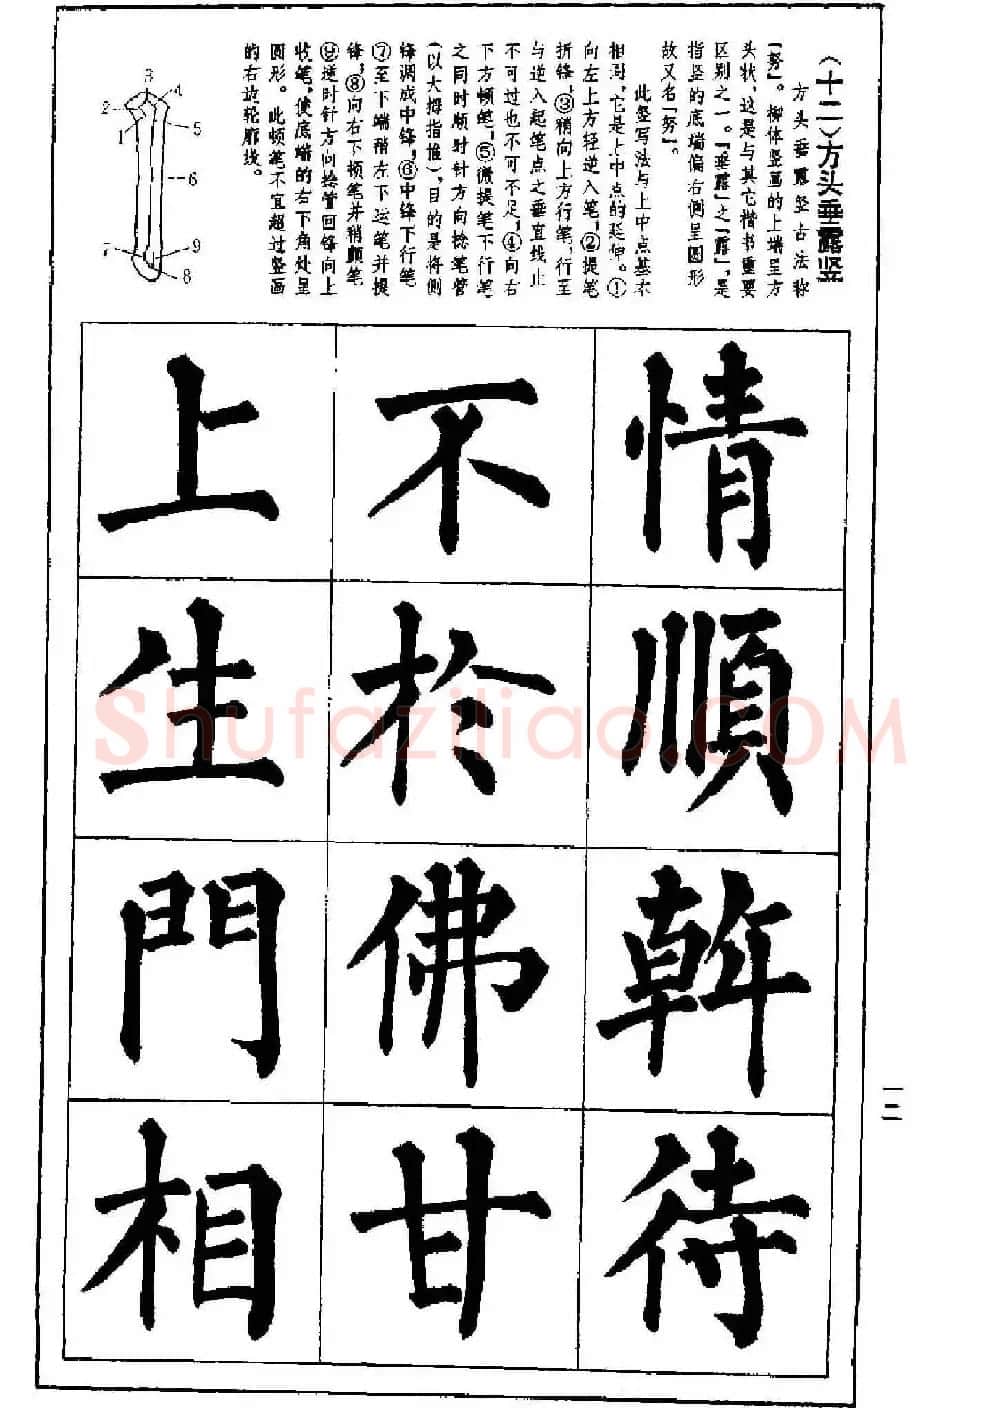 (十二)方头垂露竖
方头垂露竖古法称
“努”。柳体竖画的上端呈方
头状,这是与其它楷书重要
区别之一。“垂露”之“露”,是
指竖的底端偏右侧呈圆形
故又名“努”。
此竖写法与上中点基本
相同,它是上中点的延伸。①
向左上方轻逆入笔;②提笔
折锋;③稍向上方行笔,行至
与逆入起笔点之垂直线止
不可过也不可不足;④向右
下方顿笔;⑤微提笔下行笔
之同时顺时针方向捻笔管
(以大拇指推),目的是将侧
锋调成中锋;⑥中锋下行笔
⑦至下端稍左下运笔并提
锋;⑧向右下顿笔并稍颤笔
⑨逆时针方向捻管回锋向上
收笔,使底端的右下角处呈
圆形。此顿笔不宜超过竖画
的右边轮廓线。
1
2
3
4
5
6
7
8
9
情順斡待
不於佛甘
上生門相
一二
Shufaziliao.COM